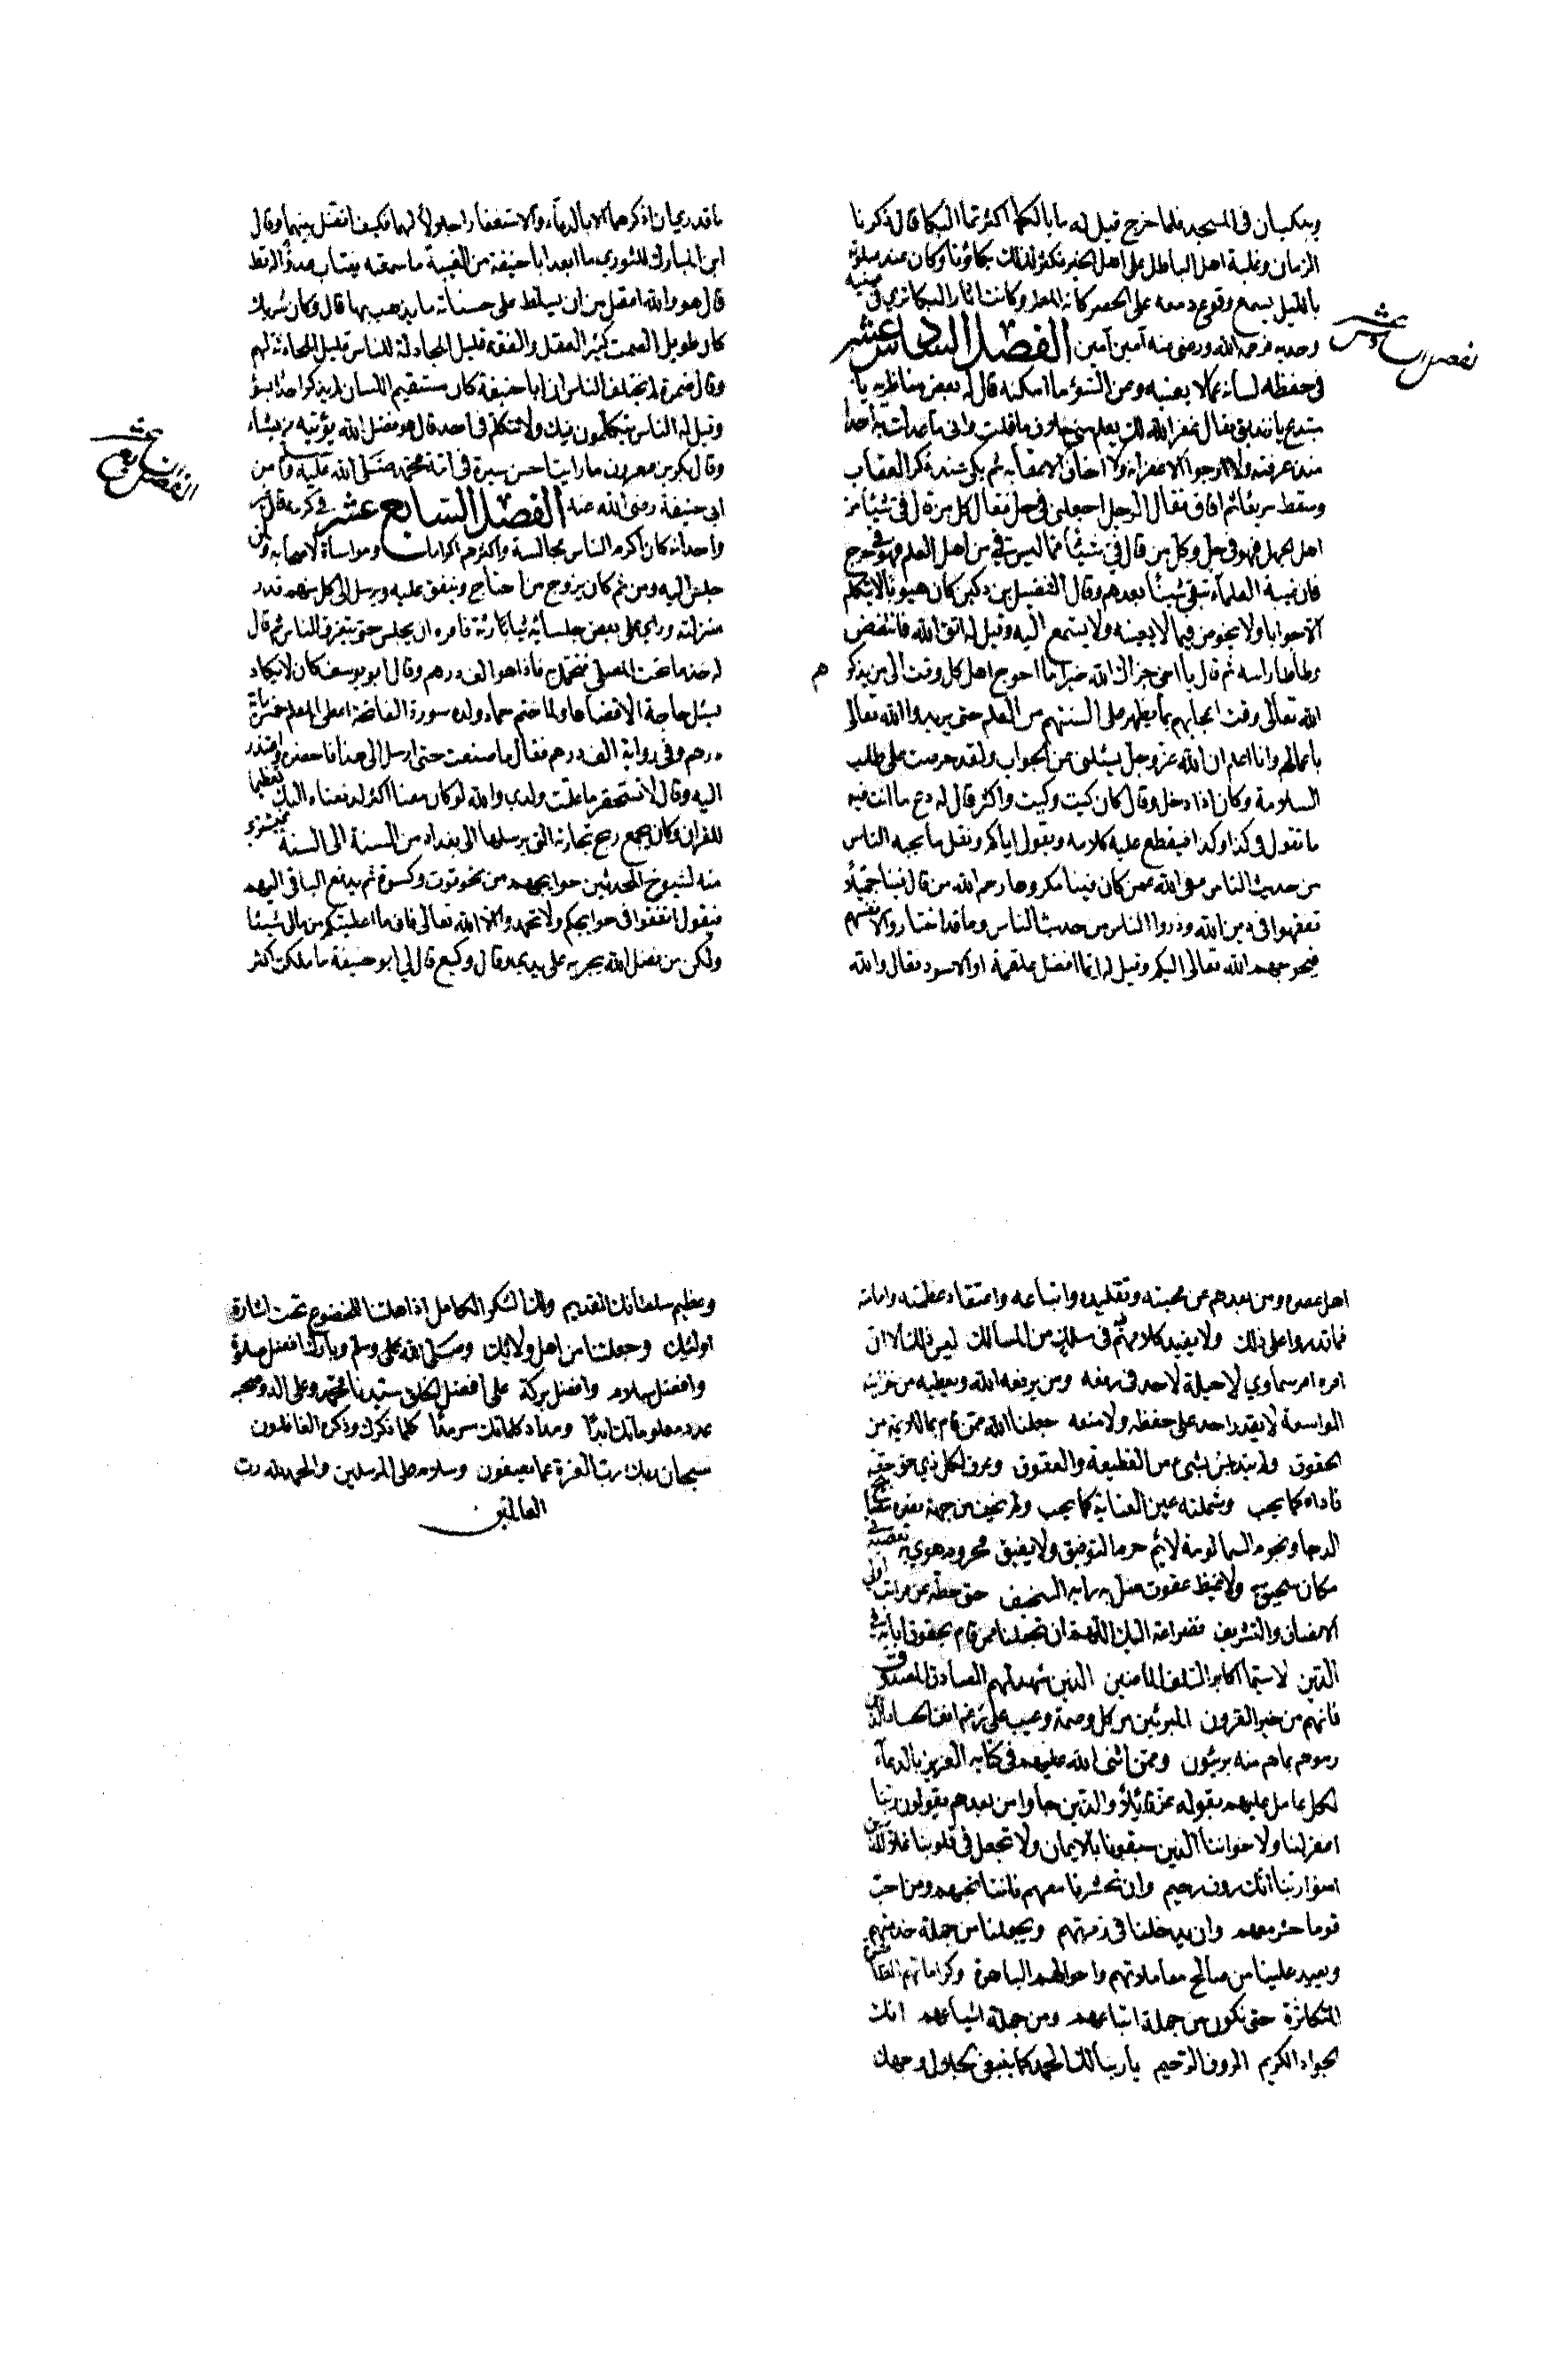 ويبكيان في المسجد فلما خرج قيل له ما بالكما اكثرتما البكا قال ذكرنا
الزمان وغلبة اهل الباطل على اهل الخير فكثر لذلك بكاؤنا وكان عند صلوته
بالليل يسمع وقوع دمعه على الحصر كانه المطر وكانت اثار البكا ترى في عينيه
وخديه فرحمه الله ورضى عنه آمين آمين الفصل السادس عشر
في حفظه لسانه عما لا يعنيه وعن السوء ما امكنه قال له بعض مناظريه يا
مبتدع يا زنديق فقال غفر الله لك يعلم مني خلاف ما قلت واني ما عدلت به احدا
منذ عرفته ولا ارجوا الا عفوه ولا اخاف الا عقابه ثم بكى عند ذكر العقاب
وسقط صريعا ثم افاق فقال الرجل اجعلني في حل فقال كل من قال في شيئا من
اهل الجهل فهو في حل وكل من قال في شيئا مما ليس في من اهل العلم فهو في حرج
فان غيبة العلماء تبقى شيئا بعدهم وقال الفضيل بن دكين كان هيوبا لا يتكلم
الا جوابا ولا يخوض فيما لا يعينه ولا يستمع اليه وقيل له اتق الله فانتفض
وطاطا راسه ثم قال يا اخي جزاك الله خيرا ما احوج اهل كل وقت الى من يذكرهم
الله تعالى وقت اعجابهم بما يظهر على السنتهم من العلم حتى يريدوا الله تعالى
باعمالهم وانا اعلم ان الله عز وجل يسئلني عن الجواب ولقد حرصت على طلب
السلامة وكان اذا دخل وقال كان كيت وكيت واكثر قال له دع ما انت فيه
ما تقول في كذا وكذا فيقطع عليه كلامه ويقول اياكم ونقل ما يحبه الناس
من حديث الناس عفى الله عمن كان فينا مكروها رحم الله من قال فينا جميلا
تفقهوا في دين الله وذروا الناس من حديث الناس وما قد اختاروا لانفسهم
فيحوجهم الله تعالى اليكم وقيل له ايما افضل علقمة او الاسود فقال والله
الفصل السادس عشر
ما قدري ان اذكرهما الا بالدعاء والاستغفار اجلالا لهما فكيف افضل بينهما وقال
ابن المبارك للثوري ما ابعد ابا حنيفة من الغيبة ما سمعته يغتاب عدوا له قط
قال هو والله اعقل من ان يسلط على حسناته ما يذهب بها قال وكان شريك
كان طويل الصمت كثير العقل والفقه قليل المجادلة للناس قليل المحادثة لهم
وقال ضمرة لم تختلف الناس ان ابا حنيفة كان مستقيم اللسان لم يذكر احدا بسوء
وقيل له الناس يتكلمون فيك ولا تتكلم في احد قال هو فضل الله يؤتيه من يشاء
وقال بكر بن معروف ما رايت احسن سيرة في امة محمد صلى الله عليه وسلم من
ابي حنيفة رضى الله عنه الفصل السابع عشر في كرمه قال غير
واحد انه كان اكرم الناس مجالسة واكثرهم اكراما ومواساة لاصحابه ومن
جلس اليه ومن ثم كان يزوج من احتاج وينفق عليه ويرسل الى كل منهم قدر
منزلته وراى على بعض جلسائه ثيابا رثة فامره ان يجلس حتى يتفرق الناس ثم قال
له خذ ما تحت المصلى فتجمل به فاذا هو الف درهم وقال ابو يوسف كان لا يكاد
يسئل حاجة الا قضاها ولما ختم حماد ولده سورة الفاتحة اعطى المعلم خمسمائة
درهم وفي رواية الف درهم فقال ما صنعت حتى ارسل الى هذا فاحضره واعتذر
اليه وقال لا تستحقر ما علمت ولدي والله لو كان معنا اكثر لدفعناه اليك تعظيما
للقران وكان يجمع ربح تجارته التي يرسلها الى بغداد من السنة الى السنة فيشتري
منه لشيوخ المحدثين حوايجهم من نحو قوت وكسوة ثم يدفع الباقي اليهم
فيقول انفقوا في حوايجكم ولا تحمدوا الا الله تعالى فاني ما اعطيتكم من مالي شيئا
ولكن من فضل الله يجريه على يدي وقال وكيع قال لي ابو حنيفة ما ملكت اكثر
الفصل السابع عشر
اهل عصره ومن بعدهم عن محبته وتقليده واتباعه واعتقاد عظمته وامامته
فما قدروا على ذلك ولا يفيد كلامهم في مسلك من المسالك ليس ذلك الا ان
امره امر سماوي لا حيلة لاحد في رفعه ومن يرفعه الله ويعطيه من خزاينه
الواسعة لا يقدر احد على خفظه ولا منعه جعلنا الله ممن قام بما للائمة من
الحقوق ولم يتدنس بشيء من القطيعة والعقوق وعرف لكل ذي حق حقه
فاداه كما يجب وشملته عين العناية كما يجب
الدجا ونجوم السما لومة لائم حرم التوفيق
مكان سحيق
الانصاف والتشريف فضراعة اليك اللهم ان تجعلنا ممن قام بحقوق
الدين لا سيما اكابر السلف الماضين الذين شهد لهم الصادق المصدوق
فانهم من خير القرون المبرئين من كل وصمة وعيب على رغم انف الحساد الذين
رموهم بما هم منه بريئون وممن اثنى الله عليهم في كتابه العزيز بالدعاء
لكل عامل عليهم بقوله عز قائلا والذين جاوا من بعدهم يقولون ربنا
اغفر لنا ولاخواننا الذين سبقونا بالايمان ولا تجعل في قلوبنا غلا للذين
امنوا ربنا انك روف رحيم وان تحشرنا معهم فاننا نحبهم ومن احب
قوما حشر معهم وان يدخلنا في زمرتهم ويجعلنا من جملة خدمتهم
ويعيد علينا من صالح معاملاتهم واحوالهم الباهرة وكراماتهم الظاهرة
المتكاثرة حتى نكون من جملة اتباعهم ومن جملة اشياعهم انك
الجواد الكريم الروف الرحيم يا ربنا لك الحمد كما ينبغي لجلال وجهك
وعظيم سلطانك القديم ولك الشكر الكامل اذ اهلتنا للخضوع تحت اشارة
اوليائك وجعلتنا من اهل ولائك وصلى الله على وسلم وبارك افضل صلوة
وافضل سلام وافضل بركة على افضل الخلق سيدنا محمد وعلى اله وصحبه
عدد معلوماتك ابدا ومداد كلماتك سرمدا كلما ذكرك وذكره الغافلون
سبحان ربك رب العزة عما يصفون وسلام على المرسلين والحمد لله رب
العالمين